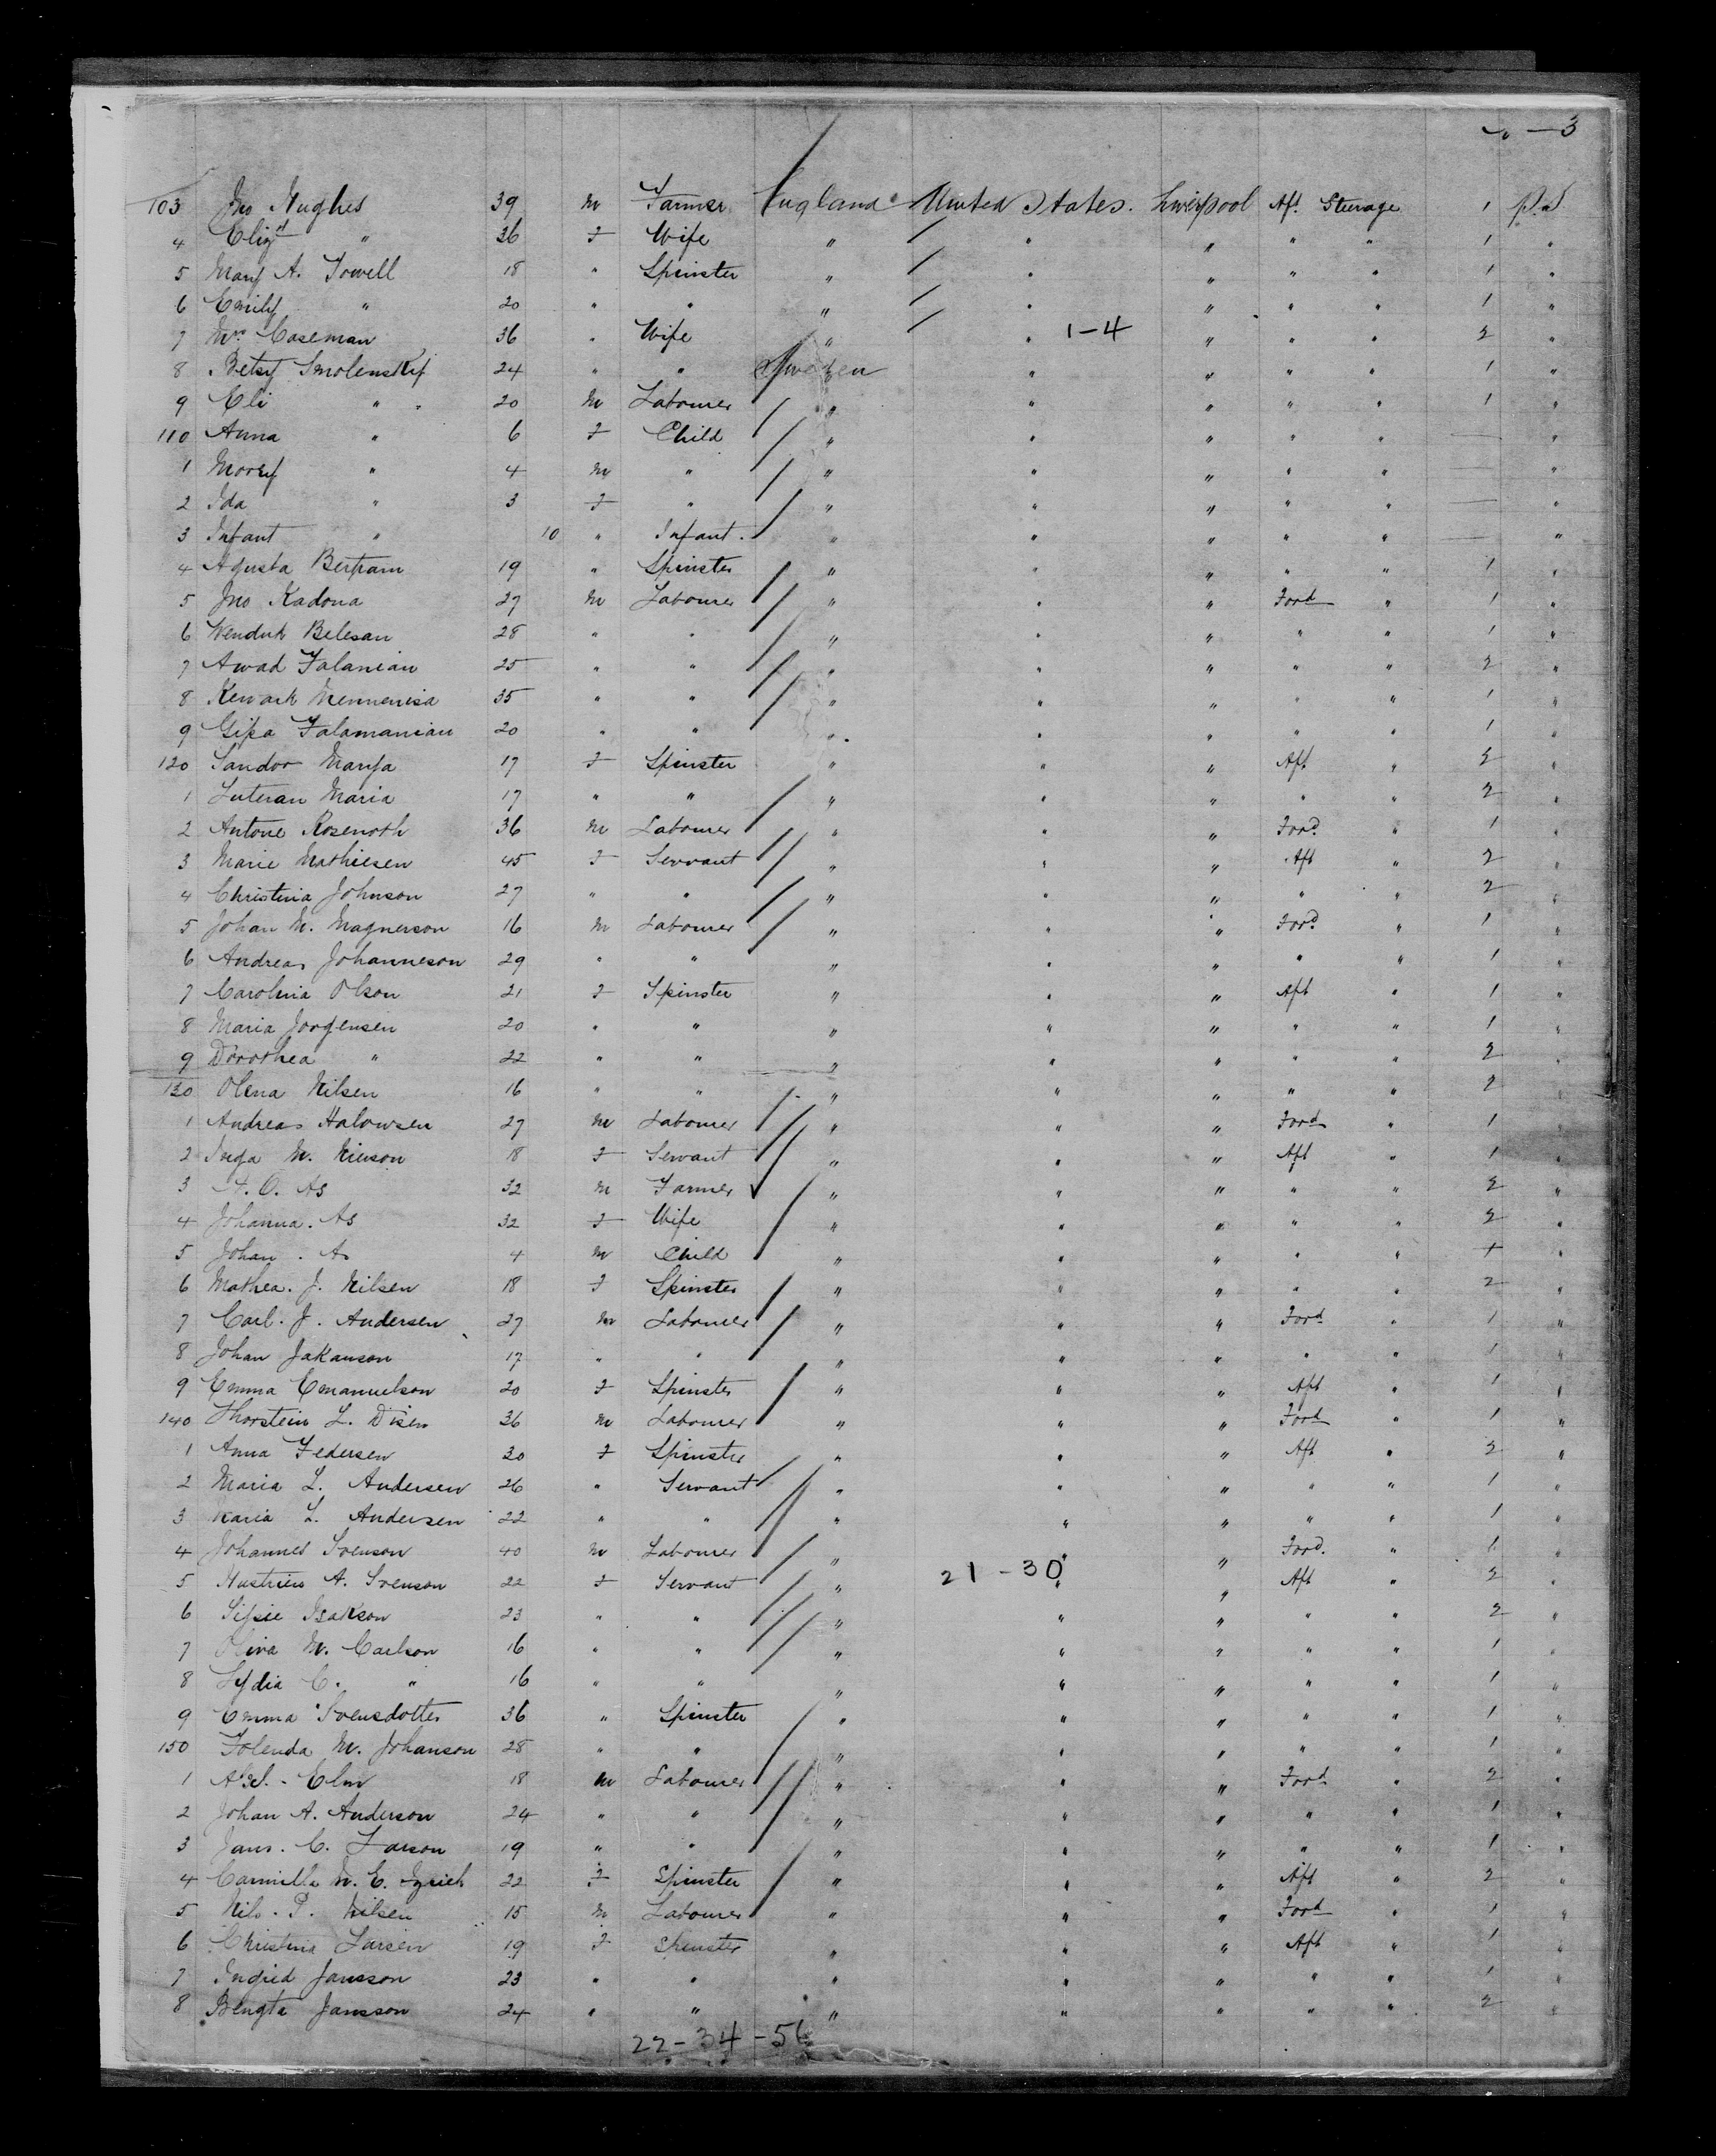 3
103 Jno Hughes 39 m Farmer England United States. Liverpool Aft. Steerage 1 p.d
4 Elizth " 36 f Wife " " " " " 1 "
5 Mary A. Towell 18 " Spinster " " " " " 1 "
6 Emily " 20 " " " " " " " 1 "
7 Mrs Coseman 36 " Wife " " 1-4 " " " 2 "
8 Betsy Smolensky 24 " " Sweden " " " " 1 "
9 Eli " 20 m Labourer " " " " " 1 "
110 Anna " 6 f Child " " " " " — "
1 Morry " 4 m " " " " " " — "
2 Ida " 3 f " " " " " " — "
3 Infant " 10 " Infant. " " " " " — "
4 Agusta Bertram 19 " Spinster " " " " " 1 "
5 Jno Kadona 27 m Labourer " " " Ford " 1 "
6 Belesan 28 " " " " " " " 1 "
7 Awad Falanian 25 " " " " " " " 2 "
8 Kewark 35 " " " " " " " 1 "
9 Falamanian 20 " " " " " " " 1 "
120 Sandor Marya 17 f Spinster " " " Aft " 2 "
1 Luteran Maria 17 " " " " " " " 2 "
2 Antone Rosenoth 36 m Labourer " " " Ford. " 1 "
3 Marie Mathiesen 45 f Servant " " " Aft " 2 "
4 Christina Johnson 27 " " " " " " " 2 "
5 Johan M. Magnerson 16 m Labourer " " " Ford. " 1 "
6 Andreas Johanneson 29 " " " " " " " 1 "
7 Carolina Olson 21 f Spinster " " " Aft " 1 "
8 Maria Jorgensen 20 " " " " " " " 1 "
9 Dorothea " 22 " " " " " " " 2 "
130 Olena Nilsen 16 " " " " " " " 2 "
1 Andreas Halowsen 27 m Labourer " " " Ford " 1 "
2 Inga M. 18 f Servant " " " Aft " 1 "
3 A. O. As 32 m Farmer " " " " " 2 "
4 Johanna. As 32 f Wife " " " " " 2 "
5 Johan. As 4 m Child " " " " " + "
6 Mathea. J. Nilsen 18 f Spinster " " " " " 2 "
7 Carl. J. Andersen 27 m Labourer " " " Ford " 1 "
8 Johan Jakanson 17 " " " " " " " 1 "
9 Emma Emanuelson 20 f Spinster " " " Aft " 1 "
140 Thorstein L. Disen 36 m Labourer " " " Ford " 1 "
1 Anna Federsen 30 f Spinster " " " Aft " 2 "
2 Maria L. Andersen 26 " Servant " " " " " 1 "
3 Karia L. Andersen 22 " " " " " " " 1 "
4 Johannes Svenson 40 m Labourer " " " Ford. " 1 "
5 A. Svenson 22 f Servant " 21-30 " " Aft " 2 "
6 Isakson 23 " " " " " " " 2 "
7 Oliva M. Carlson 16 " " " " " " " 1 "
8 Lydia C. " 16 " " " " " " " 1 "
9 Emma Svensdotter 36 " Spinster " " " " " 1 "
150 Folenda M. Johanson 28 " " " " " " " 1 "
1 Axel. Elm 18 m Labourer " " " Ford " 2 "
2 Johan A. Anderson 24 " " " " " " " 1 "
3 Jans. C. Larson 19 " " " " " " " 1 "
4 Carmilla M. E. 22 f Spinster " " " Aft " 2 "
5 Nils. P. Nilsen 15 m Labourer " " " Ford " 1 "
6 Christina Larsen 19 f Spinster " " " Aft " 1 "
7 Ingrid Jansson 23 " " " " " " " 1 "
8 Bengta Jansson 24 " " " " " " " 2 "
22-34-56